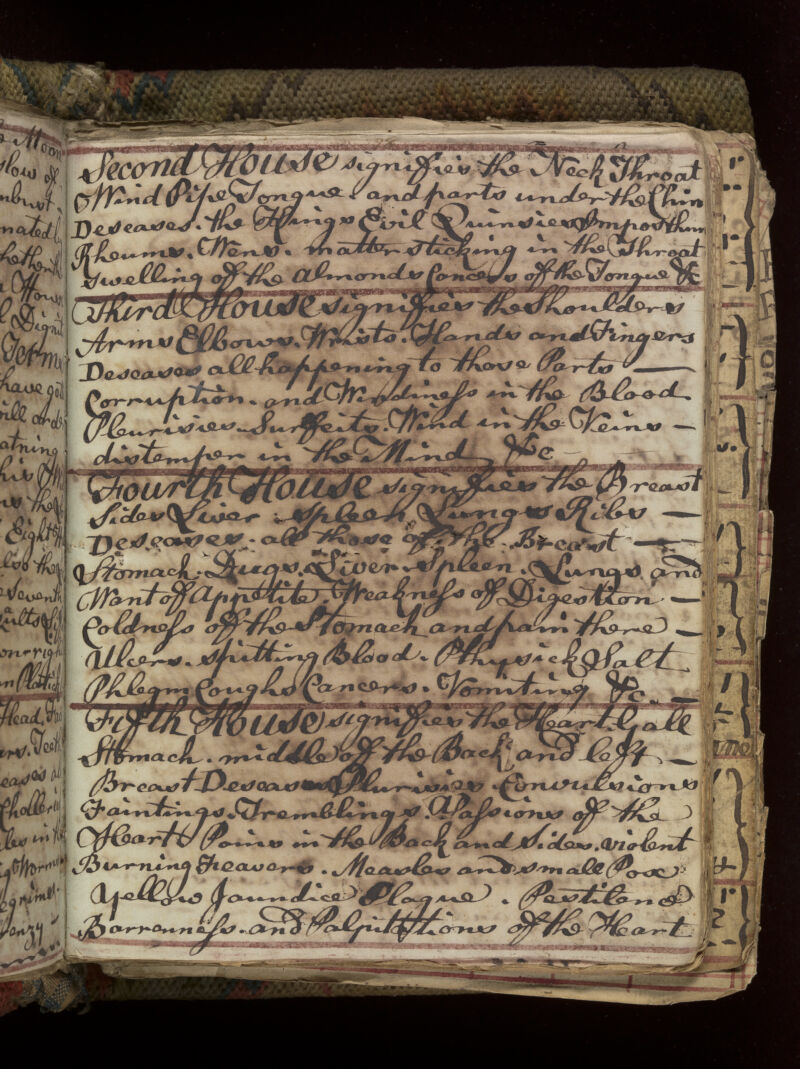 Second House signifies the Neck Throat
Wind Pipe Tongue. and parts under the Chin
Deseases. the Kings Evil Quinsies Imposthum
Rheums. Wens. matter sticking in the Throat
swelling of the Almonds Cancers of the Tongue &c
Third House signifies the Shoulders
Arms Elbows. Wrists. Hands and Fingers
Deseases all happening to those Parts —
Corruption. and Windiness in the Blood
Pleurisies. Surfeits. Wind in the Veins —
distemper in the Mind &c
Fourth House signifies the Breast
Sides Liver. spleen Lungs Ribs —
Deseases. all those of the Breast —
Stomach. Dugs. Liver. Spleen. Lungs and
Want of Appetite Weakness of Digestion —
Coldness of the Stomach and pain there —
Ulcers. spitting Blood. Pthysick Salt
Phlegm Coughs Cancers. Vomiting &c —
Fifth House signifies the Heart. Gall
Stomach. middle of the Back and left —
Breast Deseases Plurisies. Convulsions
Faintings. Tremblings. Passions of the
Heart Pains in the Back and Sides. violent
Burning Feavers. Measles and small Pox
Yellow Jaundice Plague. Pestilence
Barrenness. and Palpitations of the Heart